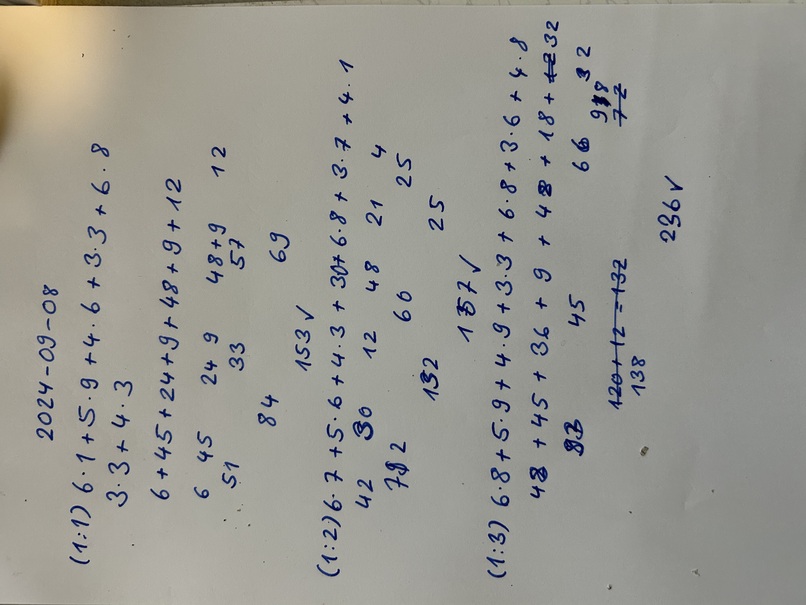 2024-09-08
(1:1) 6·1+5·9+4·6+3·3+6·8
3·3+4·3
6+45+24+9+48+9+12
6 45 24 9 48+9 12
51 33 57
84 69
153✓
(1:2) 6·7+5·6+4·3+30+6·8+3·7+4·1
42 30 12 48 21 4
72 60 25
132 25
157✓
(1:3) 6·8+5·9+4·9+3·3+6·8+3·6+4·8
48+45+36+9+48+18+12 32
93 45 66 32
120+12=132 98 72
138
236✓